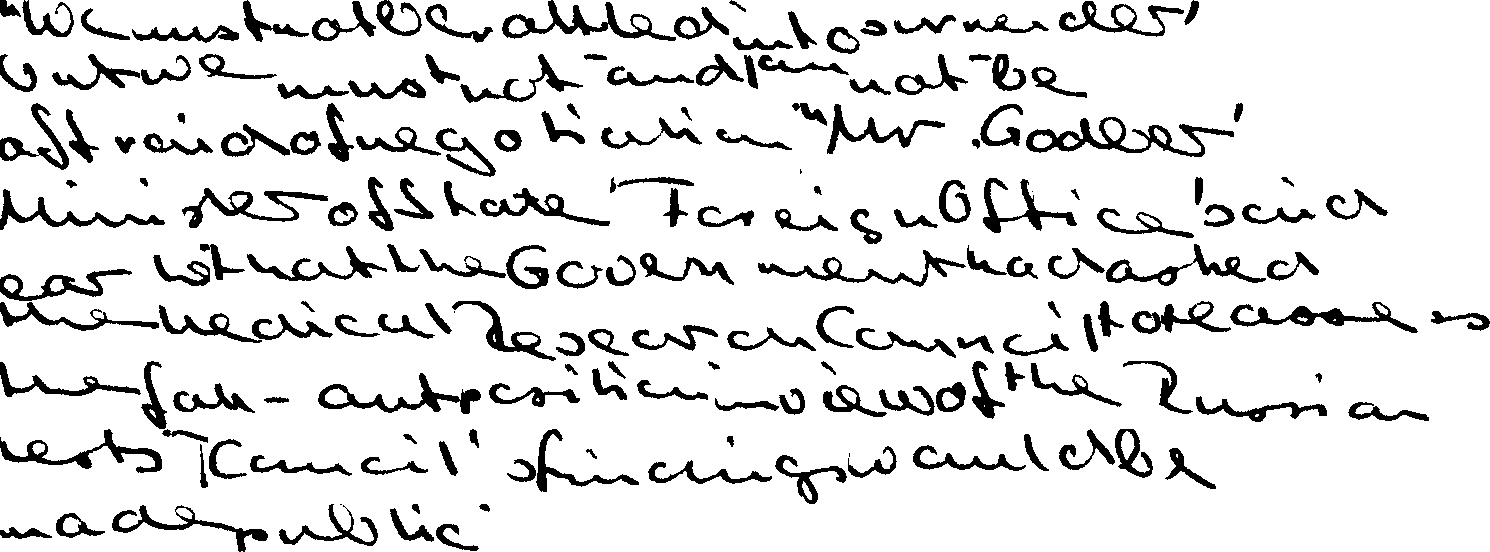 "We must not be rattled into surrender,
but we must not - and I am not - be
afraid of negotiation." Mr. Godber,
Minister of State, Foreign Office, said
earlier that the Government had asked
the Medical Research Council to reassess
the fall-out position in view of the Russian
tests. Council's findings would be
made public.